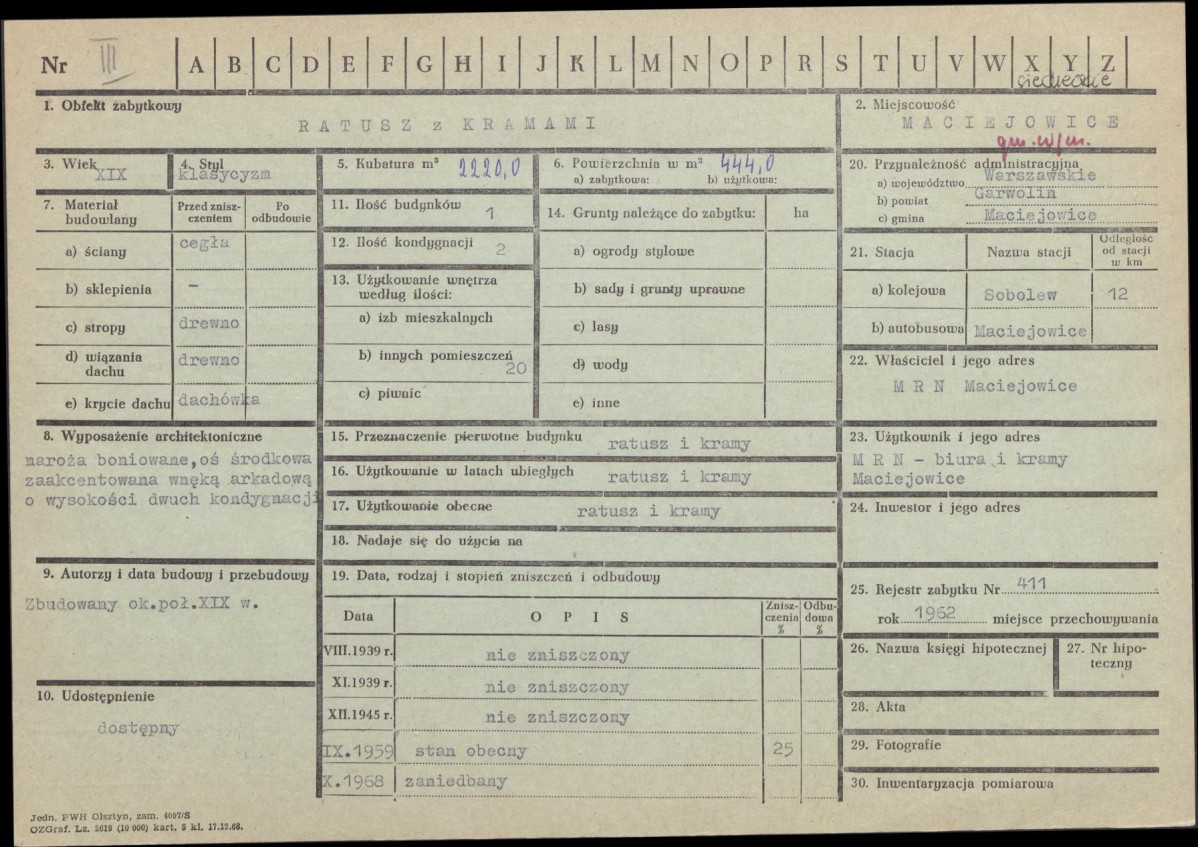 Nr III A B C D E F G H I J K L M N O P R S T U V W X Y Z
siedleckie
1. Obiekt zabytkowy
RATUSZ z KRAMAMI
2. Miejscowość
MACIEJOWICE
gm. w/m.
3. Wiek
XIX
4. Styl
klasycyzm
5. Kubatura m³ 2220,0
6. Powierzchnia w m² 444,0
a) zabytkowa: b) użytkowa:
20. Przynależność administracyjna
a) województwo Warszawskie
b) powiat Garwolin
c) gmina Maciejowice
7. Materiał budowlany
Przed zniszczeniem
Po odbudowie
a) ściany cegła
b) sklepienia –
c) stropy drewno
d) wiązania dachu drewno
e) krycie dachu dachówka
11. Ilość budynków 1
12. Ilość kondygnacji 2
13. Użytkowanie wnętrza
według ilości:
a) izb mieszkalnych
b) innych pomieszczeń 20
c) piwnic
14. Grunty należące do zabytku: ha
a) ogrody stylowe
b) sady i grunty uprawne
c) lasy
d) wody
e) inne
21. Stacja Nazwa stacji Odległość od stacji w km
a) kolejowa Sobolew 12
b) autobusowa Maciejowice
22. Właściciel i jego adres
M R N Maciejowice
8. Wyposażenie architektoniczne
naroża boniowane,oś środkowa
zaakcentowana wnęką arkadową
o wysokości dwuch kondygnacji
15. Przeznaczenie pierwotne budynku ratusz i kramy
16. Użytkowanie w latach ubiegłych ratusz i kramy
17. Użytkowanie obecne ratusz i kramy
18. Nadaje się do użycia na
23. Użytkownik i jego adres
M R N – biura i kramy
Maciejowice
24. Inwestor i jego adres
9. Autorzy i data budowy i przebudowy
Zbudowany ok.poł.XIX w.
10. Udostępnienie
dostępny
19. Data, rodzaj i stopień zniszczeń i odbudowy
Data O P I S Zniszczenia % Odbudowa %
VIII.1939 r. nie zniszczony
XI.1939 r. nie zniszczony
XII.1945 r. nie zniszczony
IX.1959 stan obecny 25
X.1968 zaniedbany
25. Rejestr zabytku Nr 411
rok 1962 miejsce przechowywania
26. Nazwa księgi hipotecznej
27. Nr hipoteczny
28. Akta
29. Fotografie
30. Inwentaryzacja pomiarowa
Jedn. PWH Olsztyn, zam. 4097/S
OZGraf. Lz. 2619 (10 000) kart. 5 kl. 17.12.68.